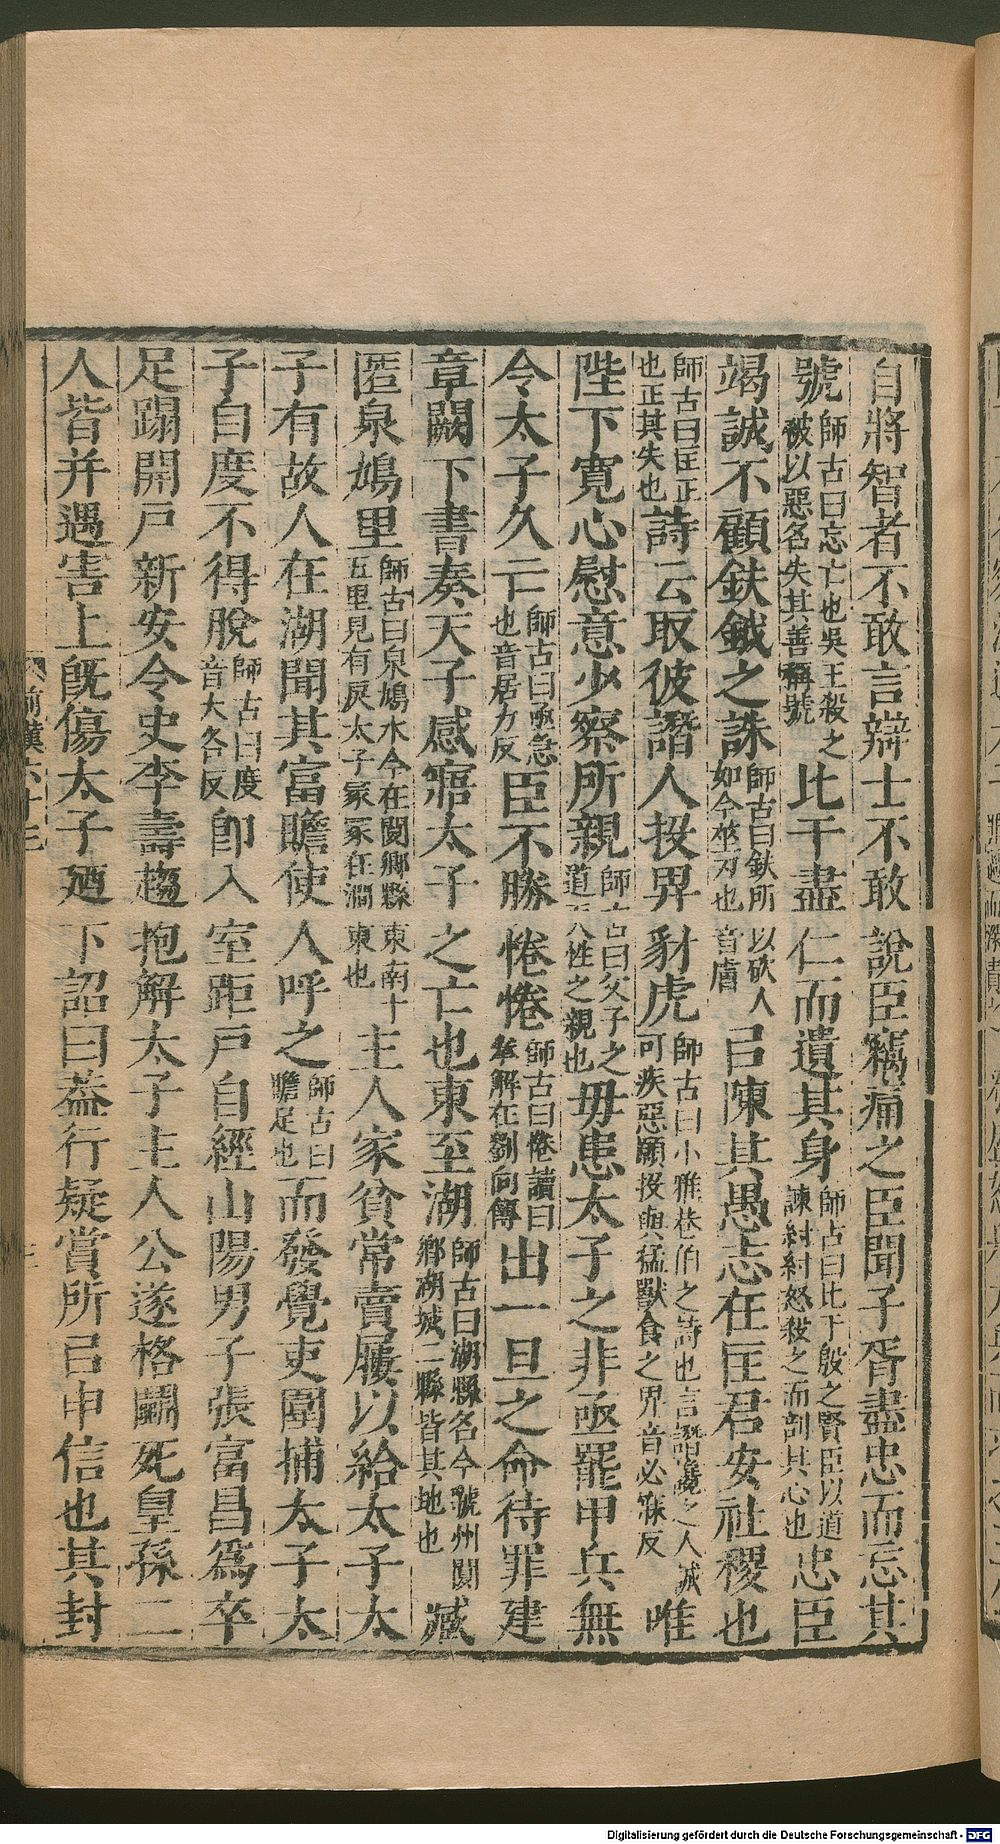 自將智者不敢言辯士不敢說臣竊痛之臣聞子胥盡忠而忘其
號師古曰忘亡也吳王殺之被以惡名失其善稱號比干盡仁而遺其身師古曰比干殷之賢臣以道諫紂紂怒殺之而剖其心也忠臣
竭誠不顧鈇鉞之誅師古曰鈇所以砍人如今莝刃也音膚㠯陳其愚志在匡君安社稷也
師古曰匡正也正其失也詩云取彼譖人投畀豺虎師古曰小雅巷伯之詩也言譖讒之人誠可疾惡願投與猛獸食之畀音必寐反唯
陛下寬心慰意少察所親師古曰父子之道天性之親也毋患太子之非亟罷甲兵無
令太子久亡師古曰亟急也音居力反臣不勝惓惓師古曰惓讀曰拳解在劉向傳出一旦之命待罪建
章闕下書奏天子感寤太子之亡也東至湖師古曰湖縣名今虢州閿鄉湖城二縣皆其地也臧
匿泉鳩里師古曰泉鳩水今在閿鄉縣東南十五里見有戾太子冢冢在澗東也主人家貧常賣屨以給太子太
子有故人在湖聞其富贍使人呼之師古曰贍足也而發覺吏圍捕太子太
子自度不得脫師古曰度音大各反卽入室距戶自經山陽男子張富昌爲卒
足蹋開戶新安令史李壽趨抱解太子主人公遂格鬭死皇孫二
人皆并遇害上旣傷太子廼下詔曰蓋行疑賞所㠯申信也其封
前漢六十三
Digitalisierung gefördert durch die Deutsche Forschungsgemeinschaft - DFG